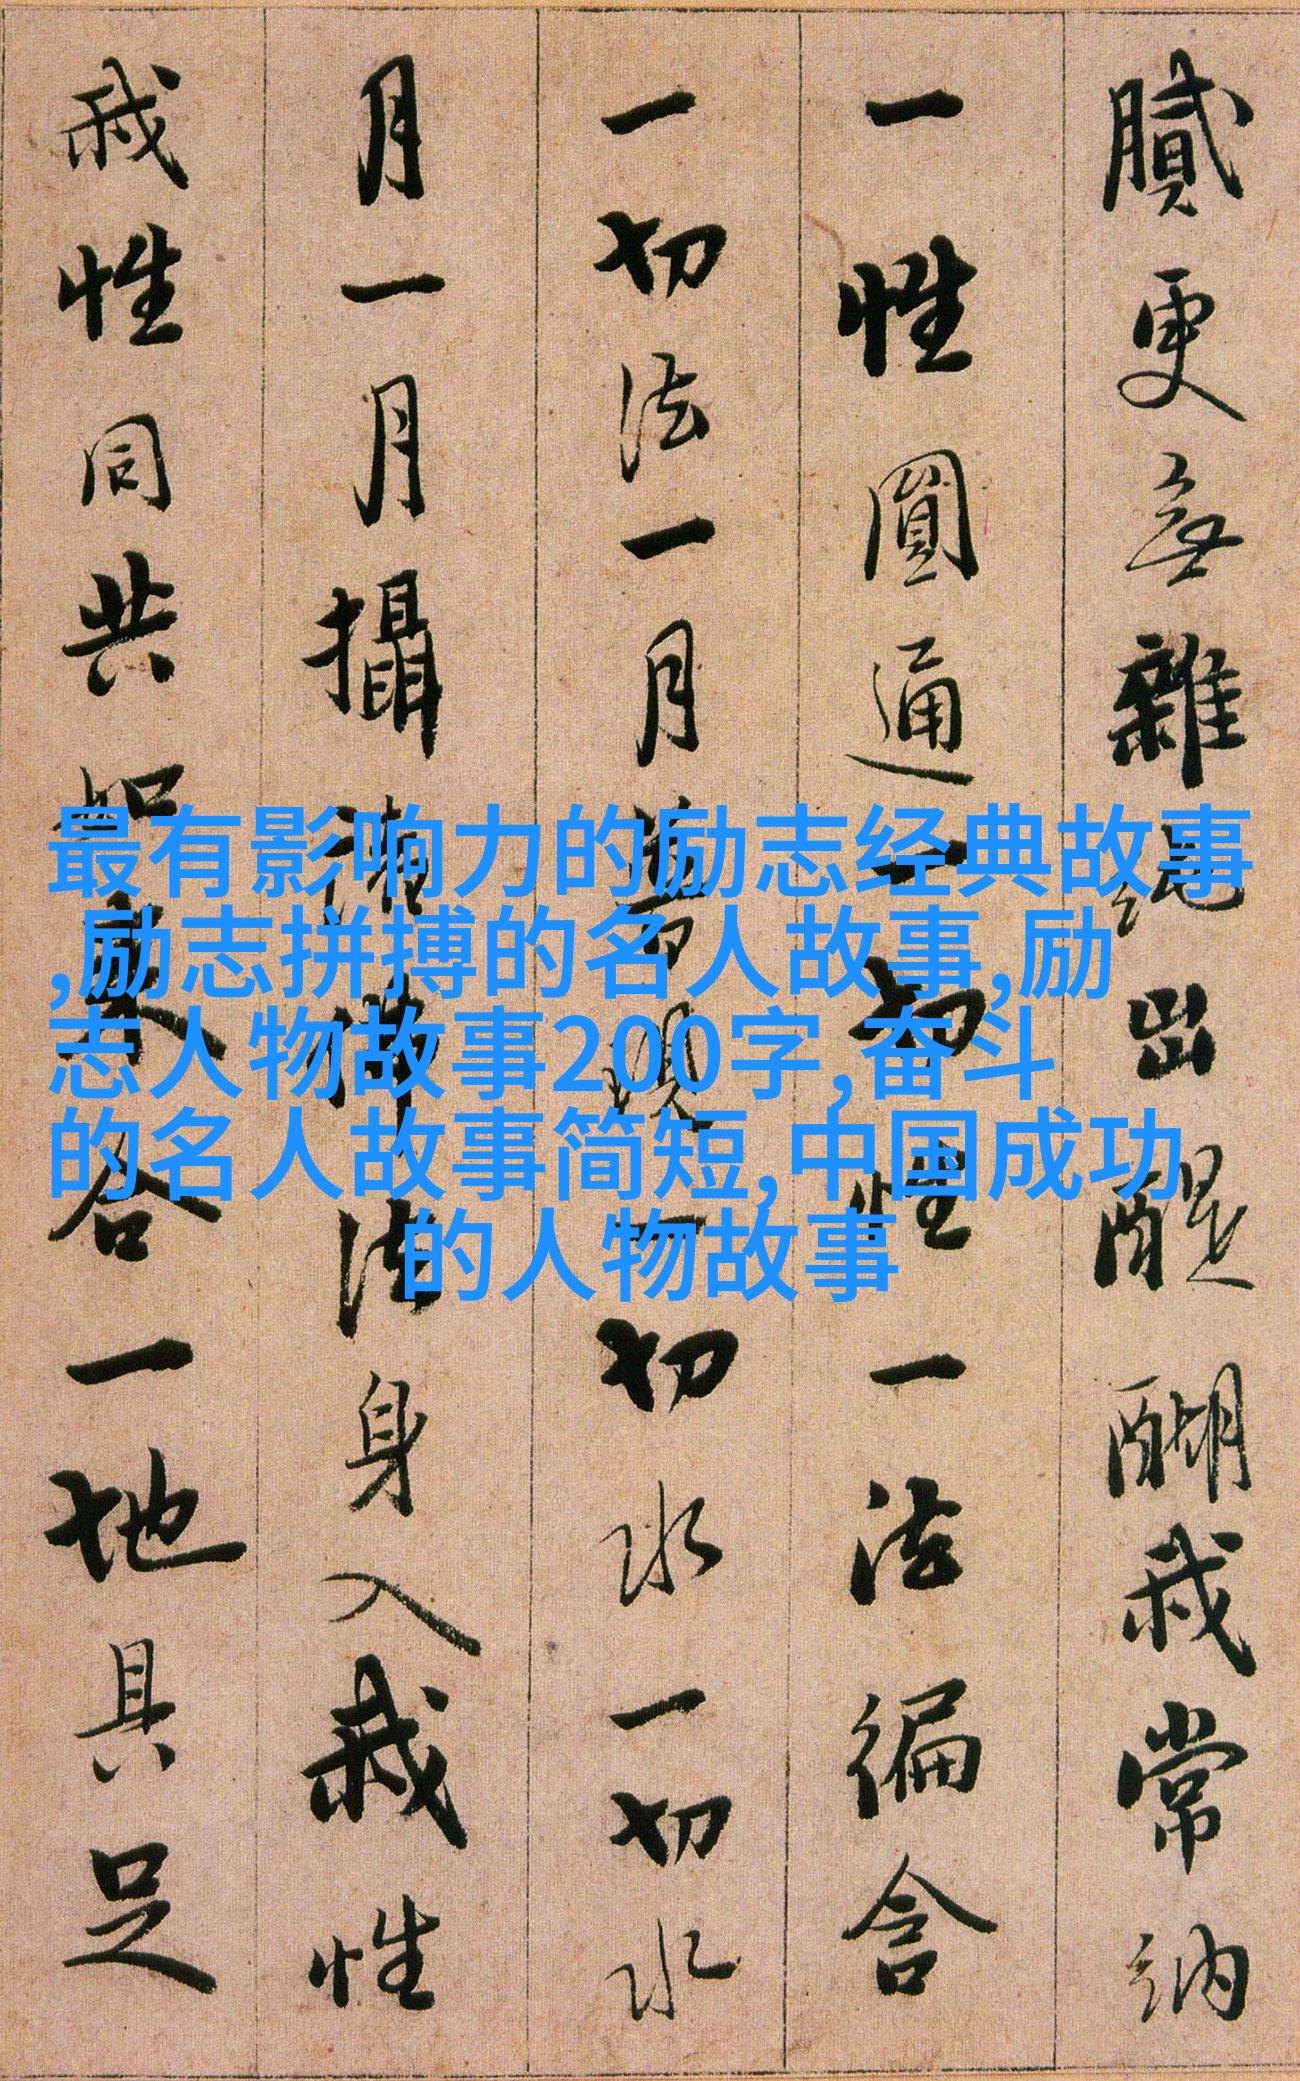 膩更無雜純出醍醐我常納
一性圓通一切性一法徧含
一切法一月普現一切水一切水
月一月攝諸佛法身入我性
我性同共如來合一地具足
最有影响力的励志经典故事
,励志拼搏的名人故事,励
志人物故事200字,奋斗
的名人故事简短,中国成功
的人物故事